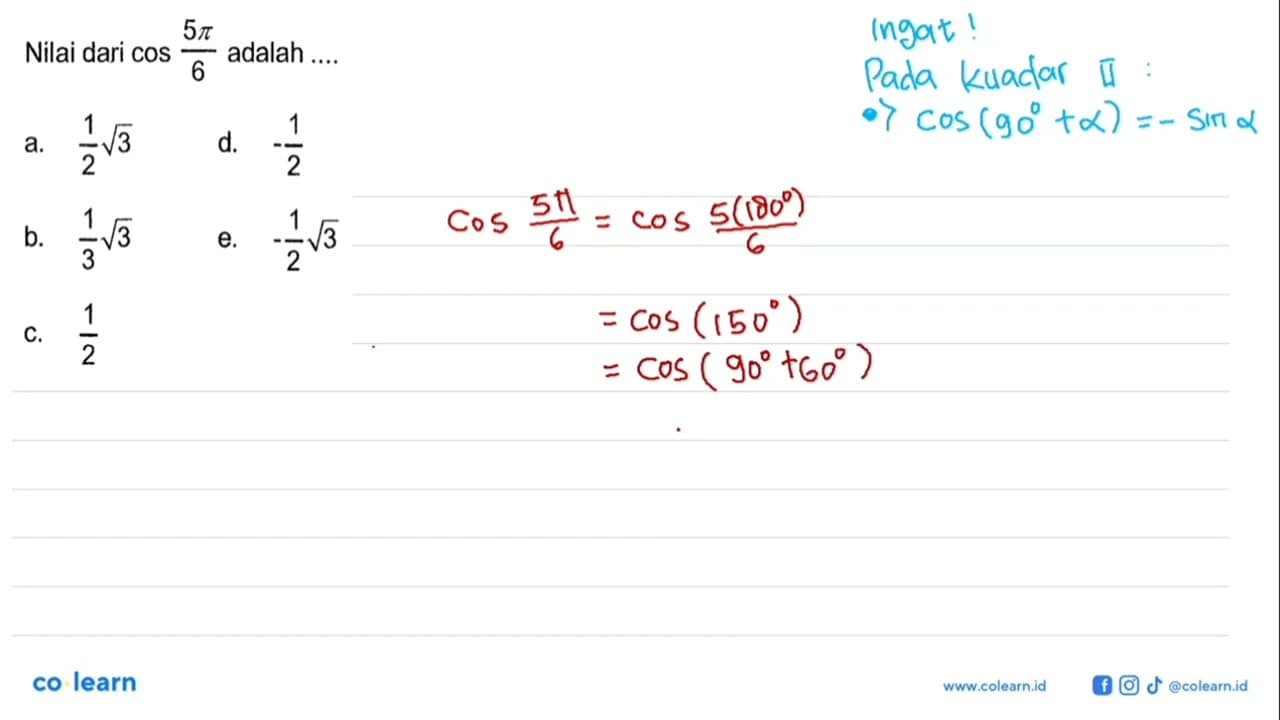 Nilai dari cos 5π/6 adalah ....
a. 1/2 √3
d. -1/2
b. 1/3 √3
e. -1/2 √3
c. 1/2
Ingat !
Pada kuadar II :
•> cos (90° + α) = - sin α
cos 5π/6 = cos 5(180°)/6
= cos (150°)
= cos (90° + 60°)
co learn
www.colearn.id
@colearn.id